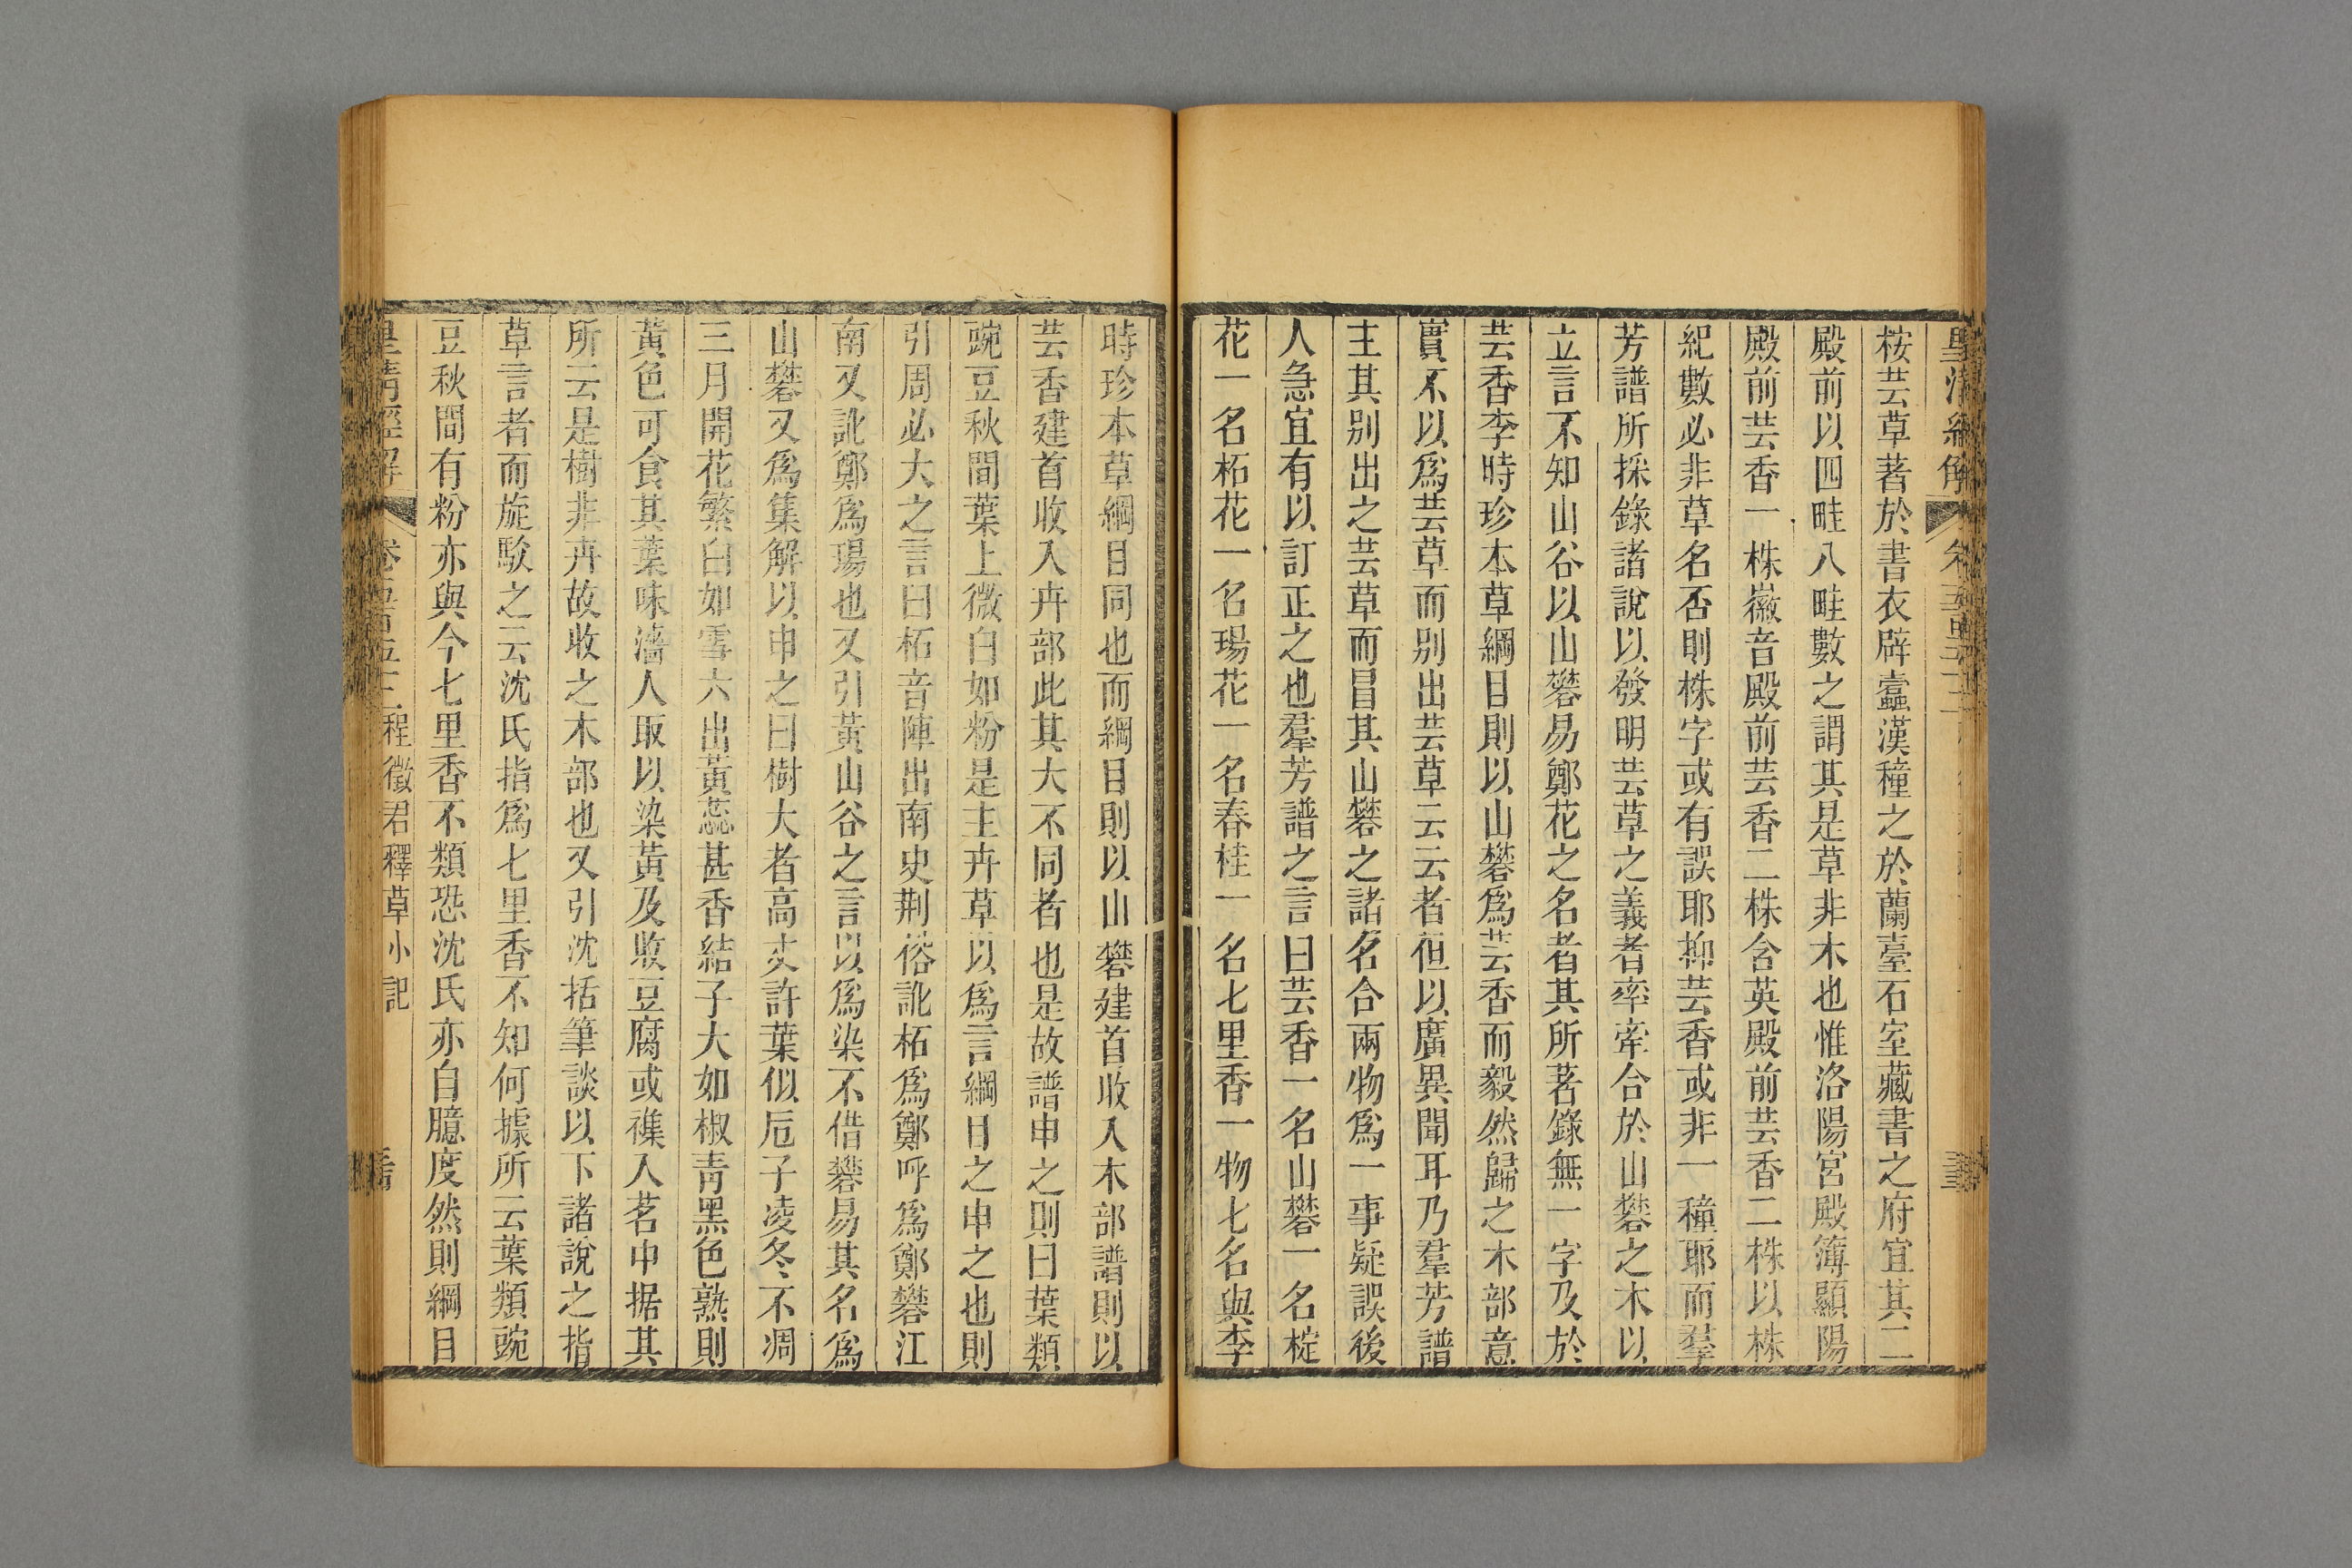 桉芸草著於書衣辟蠧漢穜之於蘭臺石室藏書之府宜其二
殿前以四畦八畦數之謂其是草非木也惟洛陽宮殿簿顯陽
殿前芸香一株徽音殿前芸香二株含英殿前芸香二株以株
紀數必非草名否則株字或有誤耶抑芸香或非一穜耶而羣
芳譜所採錄諸說以發明芸草之義者率牽合於山礬之木以
立言不知山谷以山礬易鄭花之名者其所著錄無一字及於
芸香李時珍本草綱目則以山礬爲芸香而毅然歸之木部意
實不以爲芸草而別出芸草云云者但以廣異聞耳乃羣芳譜
主其別出之芸草而冒其山礬之諸名合兩物爲一事疑誤後
人急宜有以訂正之也羣芳譜之言曰芸香一名山礬一名椗
花一名柘花一名瑒花一名春桂一名七里香一物七名與李
時珍本草綱目同也而綱目則以山礬建首收入木部譜則以
芸香建首收入卉部此其大不同者也是故譜申之則曰葉類
豌豆秋間葉上微白如粉是主卉草以爲言綱目之申之也則
引周必大之言曰柘音陣出南史荆俗訛柘爲鄭呼爲鄭礬江
南又訛鄭爲瑒也又引黃山谷之言以爲染不借礬易其名爲
山礬又爲集解以申之曰樹大者高丈許葉似卮子凌冬不凋
三月開花繁白如雪六出黃蕊甚香結子大如椒靑黑色熟則
黃色可食其葉味濇人取以染黃及收豆腐或襍入茗中据其
所云是樹非卉故收之木部也又引沈括筆談以下諸說之指
草言者而旋駁之云沈氏指爲七里香不知何據所云葉類豌
豆秋間有粉亦與今七里香不類恐沈氏亦自臆度然則綱目
皇清經解 卷五百五十二 程徵君釋草小記